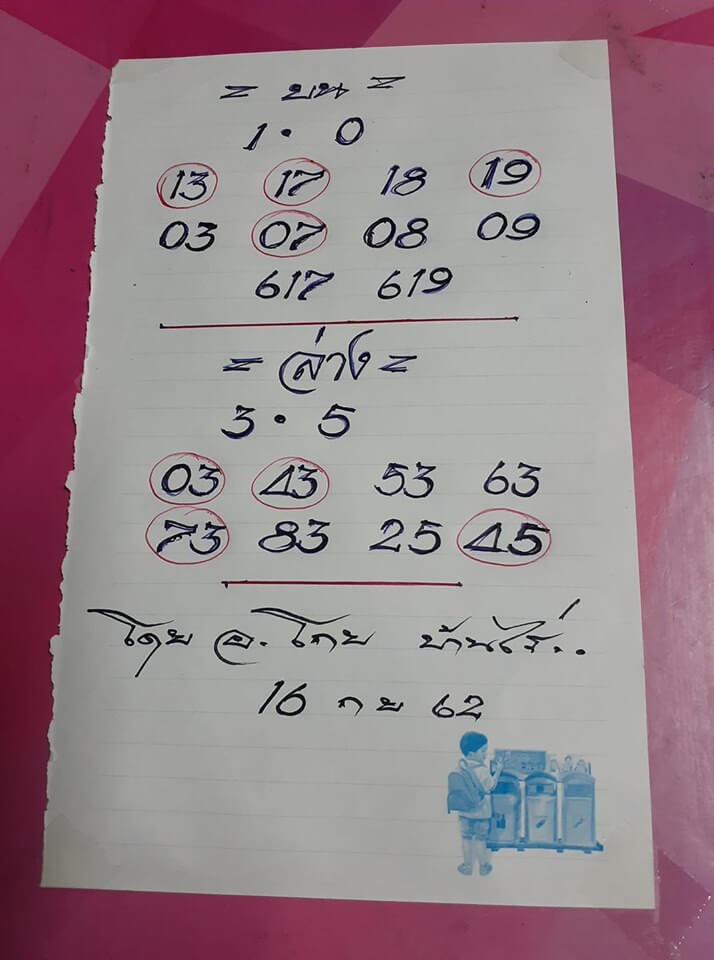 = บน =
1 · 0
13 17 18 19
03 07 08 09
617 619
= ล่าง =
3 · 5
03 43 53 63
73 83 25 45
โดย อ. โกย บ้านไร่..
16 กย 62